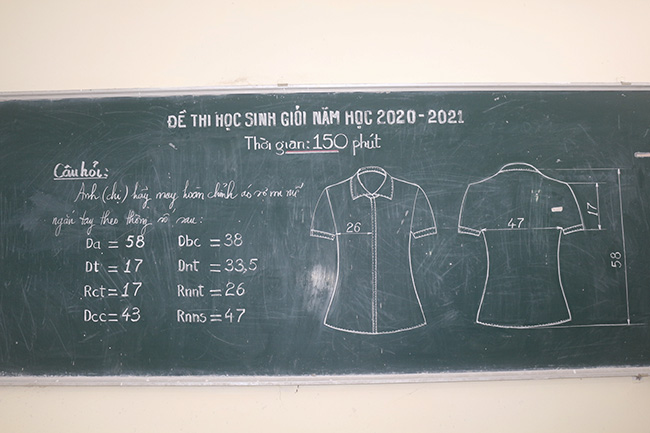 ĐỀ THI HỌC SINH GIỎI NĂM HỌC 2020-2021
Thời gian: 150 phút
Câu hỏi:
Anh (chị) hãy may hoàn chỉnh áo sơ mi nữ
ngắn tay theo thông số sau:
Da = 58 Dbc = 38
Dt = 17 Dnt = 33,5
Rct = 17 Rnnt = 26
Dcc = 43 Rnns = 47
26
47
17
58